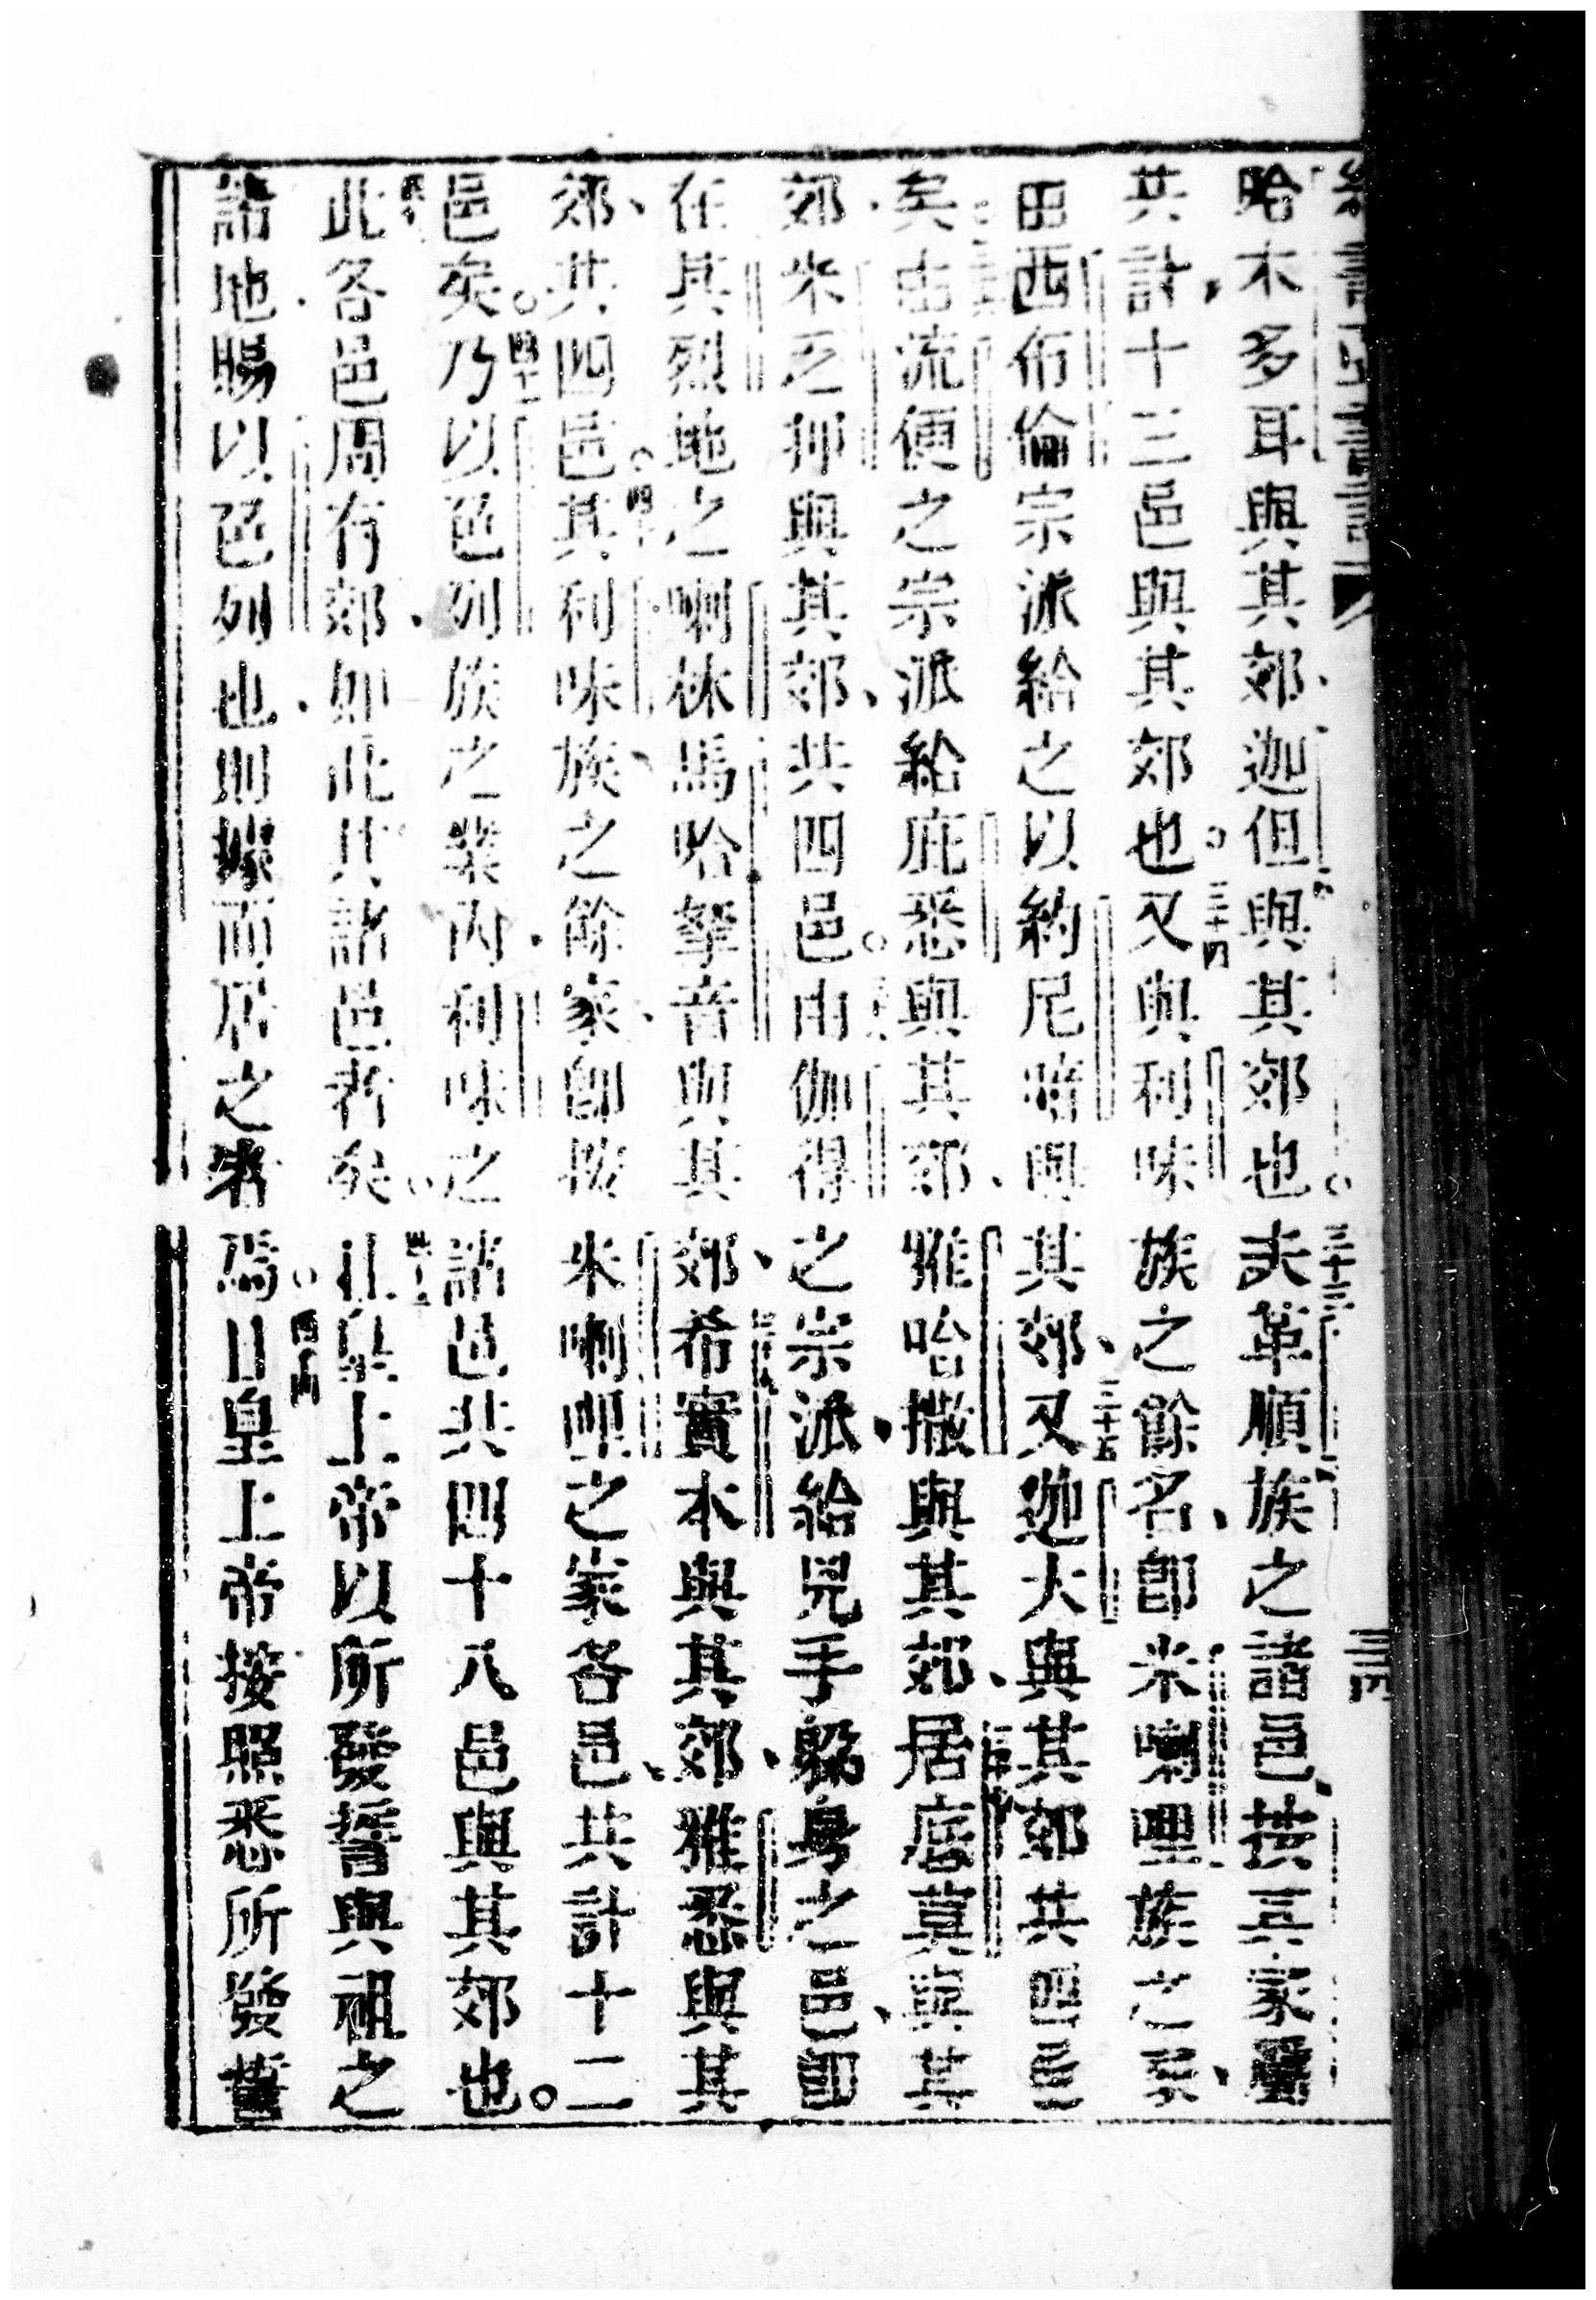 哈木多耳與其郊、迦但與其郊也。三十三夫革順族之諸邑、按其家屬
共計、十三邑與其郊也。三十四又與利味族之餘名、卽米喇哩族之家、
由西布倫宗派給之以約尼唵與其郊、三十五又迦大與其郊共四邑
矣、由流便之宗派給庇悉與其郊、雅哈撒與其郊、居底莫與其
郊、米乏押與其郊、共四邑。由伽得之宗派、給兇手躱身之邑、卽
在其烈地之喇秣、馬哈拏音與其郊、希實本與其郊、雅悉與其
郊、共四邑。四十其利味族、之餘家、卽按米喇哩之家各邑、共計十二
邑矣。四十一乃以色列族之業內、利味之諸邑共四十八邑與其郊也。
此各邑周有郊、如此其諸邑者矣。四十三且皇上帝以所發誓與祖之
諸地、賜以色列也、則據而居之者焉。四十四且皇上帝按照悉所發誓